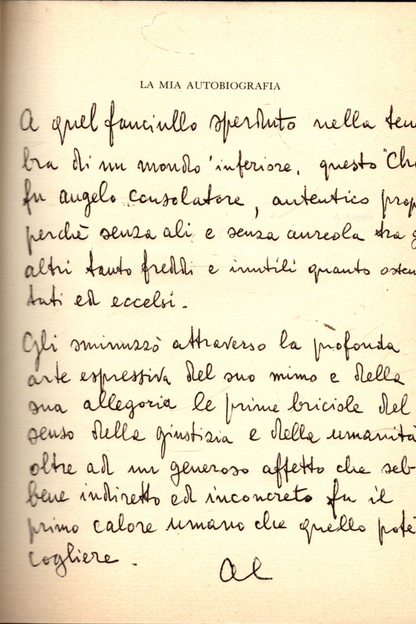 LA MIA AUTOBIOGRAFIA
A quel fanciullo sperduto nella ten
bra di un mondo inferiore, questo "Cha
fu angelo consolatore, autentico prop
perché senza ali e senza aureola tra g
altri tanto freddi e inutili quanto osten
tati ed eccelsi.
Gli sminuzzò attraverso la profonda
arte espressiva del suo mimo e della
sua allegoria le prime briciole del
senso della giustizia e della umanità
oltre ad un generoso affetto che seb
bene indiretto ed inconcreto fu il
primo calore umano che quello poté
cogliere.
al